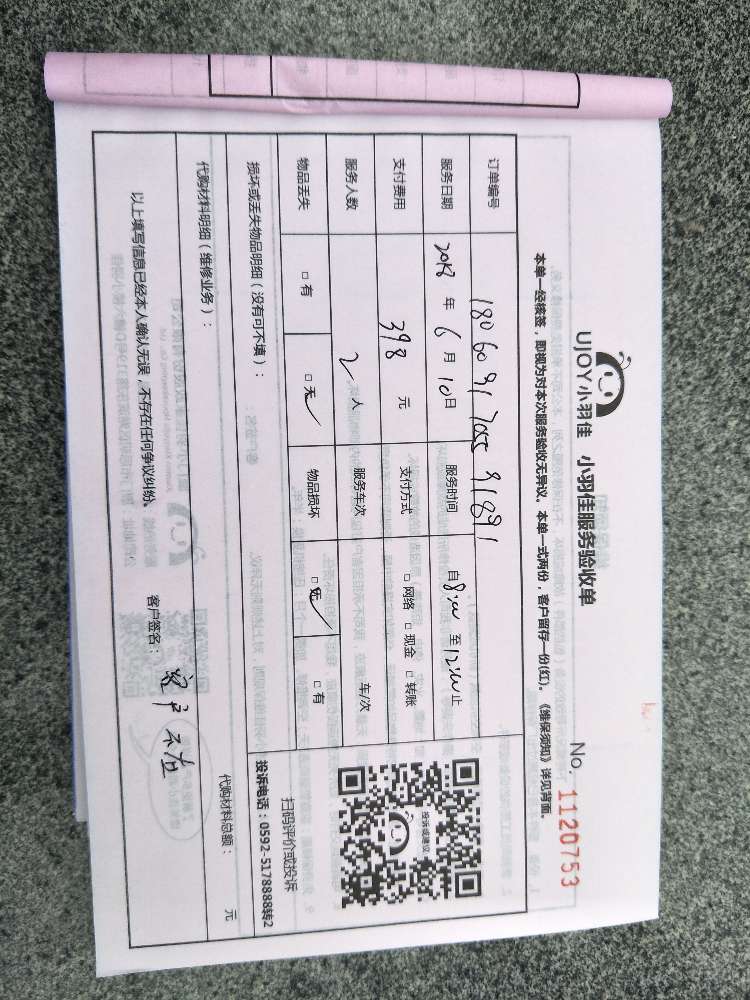 UJOY小羽佳 小羽佳服务验收单
No. 1120753
本单一经核签，即视为对本次服务验收无异议。本单一式两份，客户留存一份(红)。《维保须知》详见背面。
订单编号 1806091705591891
服务日期 2018 年 6 月 10 日 服务时间 自 8:00 至 12:00 止
支付费用 398 元 支付方式 □ 网络 □ 现金 □ 转账
服务人数 2 人 服务车次 车/次
物品丢失 □ 有 □ 无 ✓ 物品损坏 □ 无 ✓ □ 有
损坏或丢失物品明细（没有可不填）：
投诉或建议
扫码评价或投诉
投诉电话：0592-5178888转2
代购材料明细（维修业务）： 代购材料总额： 元
以上填写信息已经本人确认无误，不存在任何争议纠纷。 客户签名： 客户不在